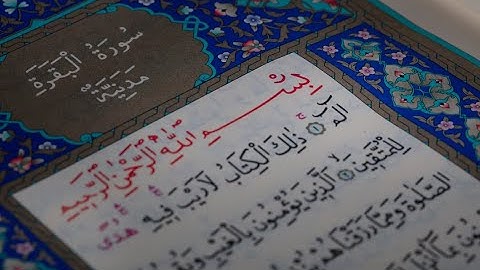 سُورَةُ الْبَقَرَةِ
مَدَنِيَّةٌ
بِسْمِ اللَّهِ الرَّحْمَنِ الرَّحِيمِ
الم ذَلِكَ الْكِتَابُ لَا رَيْبَ فِيهِ هُدًى
لِلْمُتَّقِينَ الَّذِينَ يُؤْمِنُونَ بِالْغَيْبِ
الصَّلَوةَ وَمِمَّا رَزَقْنَاهُمْ
بِمَا أُنْزِلَ